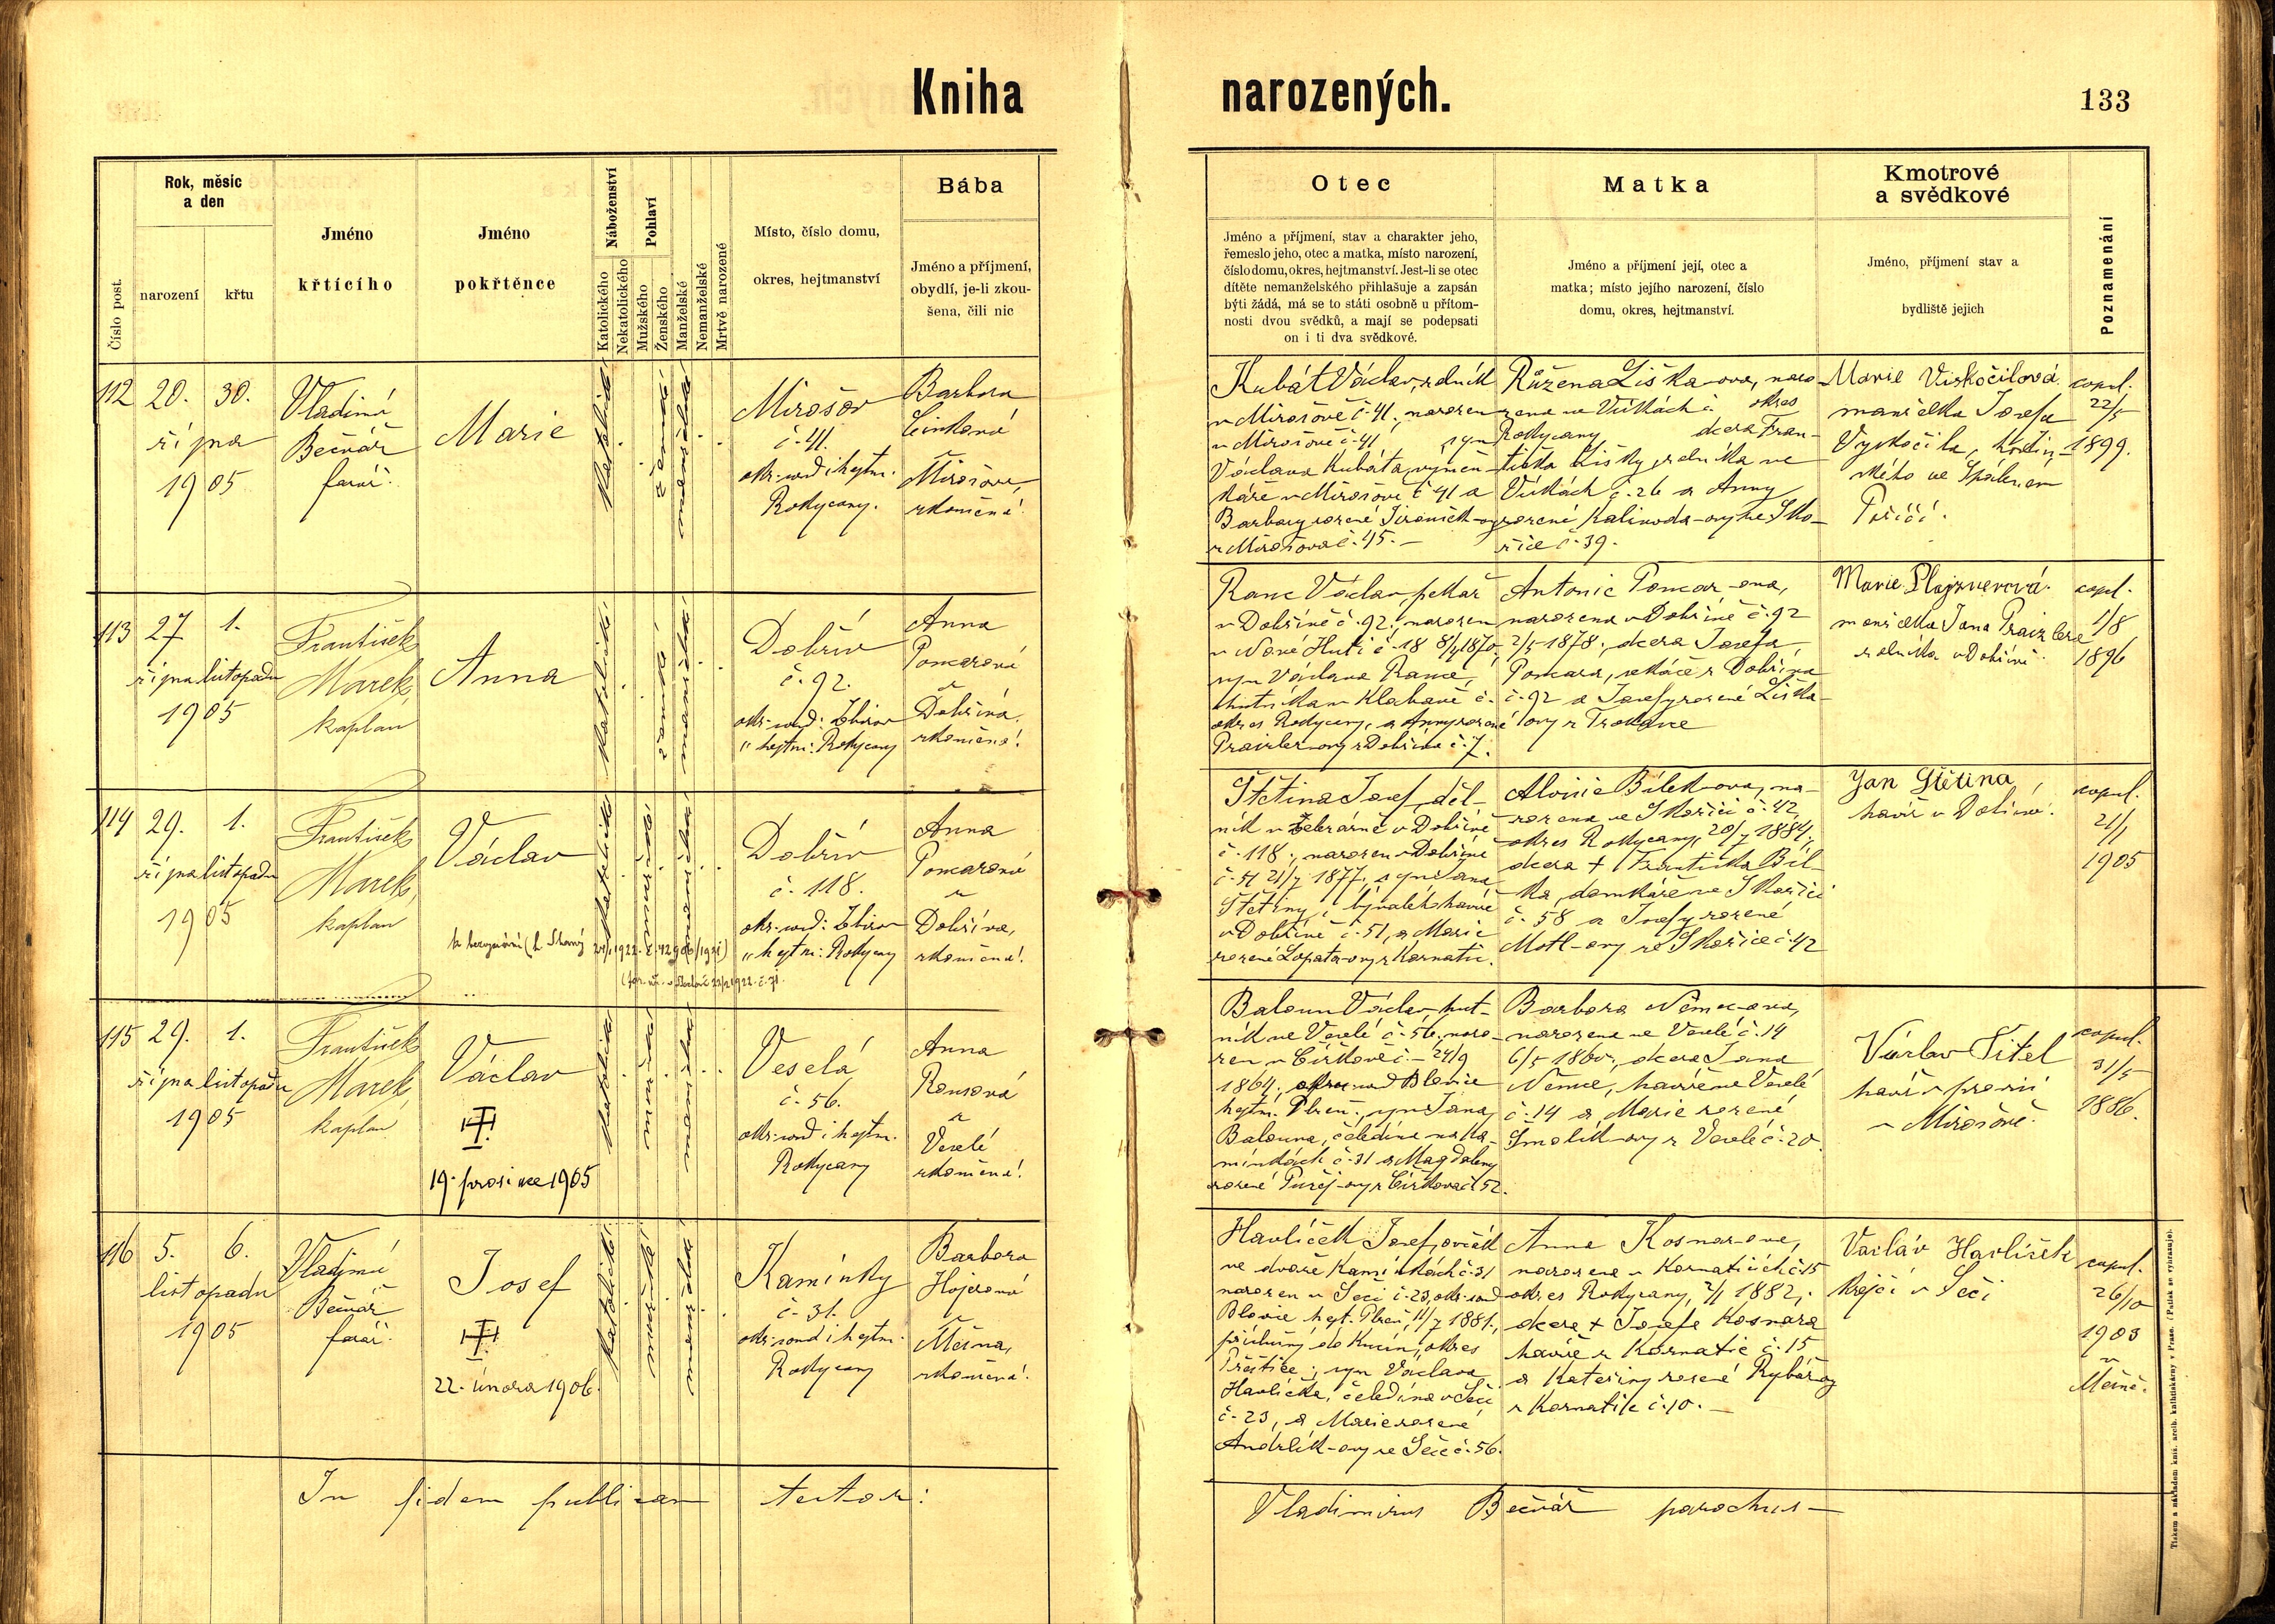 Kniha
narozených.
133
Číslo post.
Rok, měsíc
a den
narození
křtu
Jméno
křtícího
Jméno
pokřtěnce
Náboženství
Katolického
Nekatolického
Pohlaví
Mužského
Ženského
Manželské
Nemanželské
Mrtvě narozené
Místo, číslo domu,
okres, hejtmanství
Bába
Jméno a příjmení,
obydlí, je-li zkou-
šena, čili nic
Otec
Jméno a příjmení, stav a charakter jeho,
řemeslo jeho, otec a matka, místo narození,
číslo domu, okres, hejtmanství. Jest-li se otec
dítěte nemanželského přihlašuje a zapsán
býti žádá, má se to státi osobně u přítom-
nosti dvou svědků, a mají se podepsati
on i ti dva svědkové.
Matka
Jméno a příjmení její, otec a
matka; místo jejího narození, číslo
domu, okres, hejtmanství.
Kmotrové
a svědkové
Jméno, příjmení stav a
bydliště jejich
Poznamenání
112
20.
30.
října
1905
Vladimír
Bečvář
farář.
Marie
katolické
ženské
manželské
Mirošov
č. 41.
okr. soud i hejtm.
Rokycany.
Barbora
Mirošova,
zkoušená!
Kubát Václav, rolník
v Mirošově č. 41, narozen
v Mirošově č. 41 syn
Václava Kubáta, výměn-
káře v Mirošově č. 41 a
Barbory rozené
z Mirošova č. 45. —
Růžena Liška-ova, naro-
zena ve Vískách č. okres
Rokycany dcera Fran-
tiška Lišky, rolníka ve
Vískách č. 26 a Anny
rozené Kalivoda-ovy ze Sko-
řice č. 39.
Marie Viskočilová
manželka Josefa
Vyskočila, hodin-
ského ve Spáleném
Poříčí.
copul.
22/5
1899.
113
27
1.
října listopadu
1905
František
Marek,
kaplan
Anna
katolické
ženské
manželské
Dobřív
č. 92.
okr. soud: Zbiroh
„ hejtm: Rokycany
Anna
Pomarová
z
Dobříva.
zkoušená!
Ranc Václav, pekař
v Dobřívě č. 92, narozen
v Nové Huti č. 18 8/4 1870,
syn Václava Rance,
hutníka v Klabavě č.
okres Rokycany, a Anny rozené
Praizler-ovy z Dobříva č. 7.
Antonie Pomar-ova,
narozena v Dobřívě č. 92
2/5 1878, dcera Josefa
Pomara, sekáče z Dobříva
č. 92 a Josefy rozené Liška-
ovy z Trokavce
Marie
manželka Jana Praizlera
rolníka v Dobřívě.
copul.
1/8
1896
114
29.
1.
října listopadu
1905
František
Marek,
kaplan
Václav
katolické
mužské
manželské
Dobřív
č. 118.
okr. soud: Zbiroh
„ hejtm: Rokycany
Anna
Pomarová
z
Dobříva,
zkoušená!
Štětina Josef, děl-
ník v železárně v Dobřívě
č. 118, narozen v Dobřívě
č. 51 21/7 1877, syn Jana
Štětiny, bývalého havíře
v Dobřívě č. 51, a Marie
rozené Lopata-ovy z Kornatic.
Aloisie Bílek-ova, na-
rozena ve Skořici č. 42,
okres Rokycany, 20/7 1884,
dcera † Františka Bíl-
ka, domkáře ve Skořici
č. 58 a Josefy rozené
Motl-ovy ze Skořice č. 42
Jan Štětina
havíř v Dobřívě.
copul.
21/1
1905
115
29.
1.
října listopadu
1905
František
Marek,
kaplan
Václav
19. prosince 1905
katolické
mužské
manželské
Veselá
č. 56.
okr. soud i hejtm.
Rokycany
Anna
z
Veselé
zkoušená!
Baloun Václav, hut-
ník ve Veselé č. 56, naro-
zen v Čížkově č. — 24/9
1864, okr. soud Blovice
hejtm. Plzeň, syn Jana
Balouna, čeledína na Ka-
mínkách č. 31 a Magdaleny
z Čížkova č. 52.
Barbora Němec-ova,
narozena ve Veselé č. 14
6/5 1860, dcera Jana
Němce, havíře ve Veselé
č. 14 a Marie rozené
Smolík-ovy z Veselé č. 20.
Václav Titel
havíř v
v Mirošově.
copul.
31/5
1886.
116
5.
6.
listopadu
1905
Vladimír
Bečvář
farář.
Josef
22. února 1906.
katolické
mužské
manželské
Kamínky
č. 31.
okr. soud i hejtm.
Rokycany
Barbora
Hojerová
z
Měšna,
zkoušená!
Havlíček Josef, ovčák
ve dvoře Kamínkách č. 31
narozen v Seči č. 23, okr. soud
Blovice hejt. Plzeň, 11/7 1881.,
příslušný do Kucín, okres
Přeštice; syn Václava
Havlíčka, čeledína v Seči
č. 23, a Marie rozené
Andrlík-ovy ze Seče č. 56.
Anna Kosnar-ova,
narozena v Kornaticích č. 15
okres Rokycany, 2/1 1882,
dcera † Josefa Kosnara
havíře z Kornatic č. 15
a Kateřiny rozené Rybář-ovy
z Kornatic č. 10. —
Vacláv Havlišek
krejčí v Seči
copul.
26/10
1903
v
Měšně.
In fidem publicam testor:
Vladimirus Bečvář parochus —